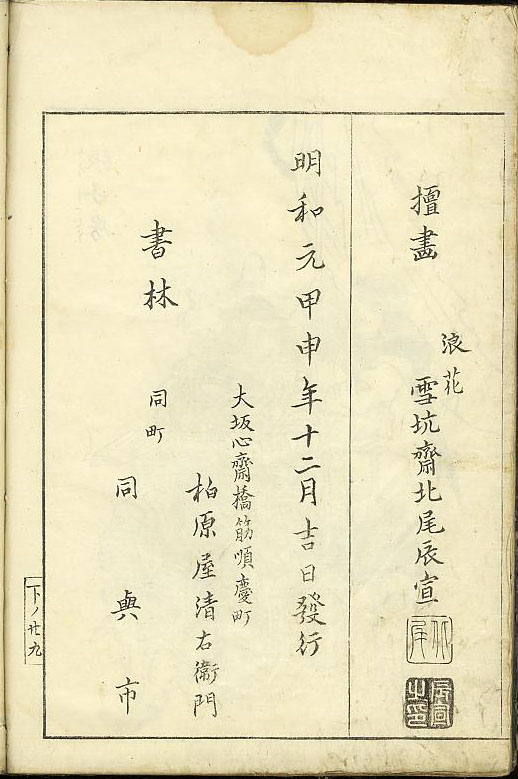 擅畫
浪花
雪坑齋北尾辰宣
明和元甲申年十二月吉日發行
大坂心齋橋筋順慶町
柏原屋清右衛門
書林
同町
同與市
下ノ廿九